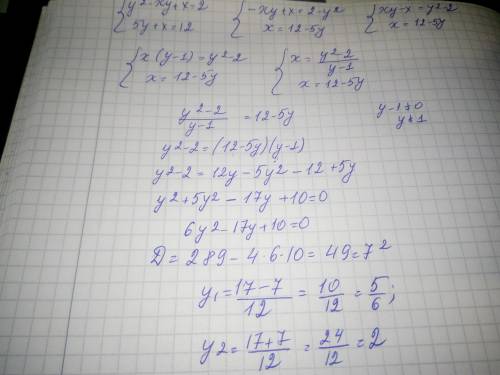 { y² - xy + x = 2   { -xy + x = 2 - y²   { xy - x = y² - 2
{ 5y + x = 12   { x = 12 - 5y   { x = 12 - 5y
{ x(y-1) = y² - 2   { x = (y² - 2)/(y - 1)
{ x = 12 - 5y   { x = 12 - 5y
(y² - 2)/(y - 1) = 12 - 5y   y - 1 ≠ 0
y ≠ 1
y² - 2 = (12 - 5y)(y - 1)
y² - 2 = 12y - 5y² - 12 + 5y
y² + 5y² - 17y + 10 = 0
6y² - 17y + 10 = 0
D = 289 - 4·6·10 = 49 = 7²
y₁ = (17 - 7)/12 = 10/12 = 5/6;
y2 = (17 + 7)/12 = 24/12 = 2